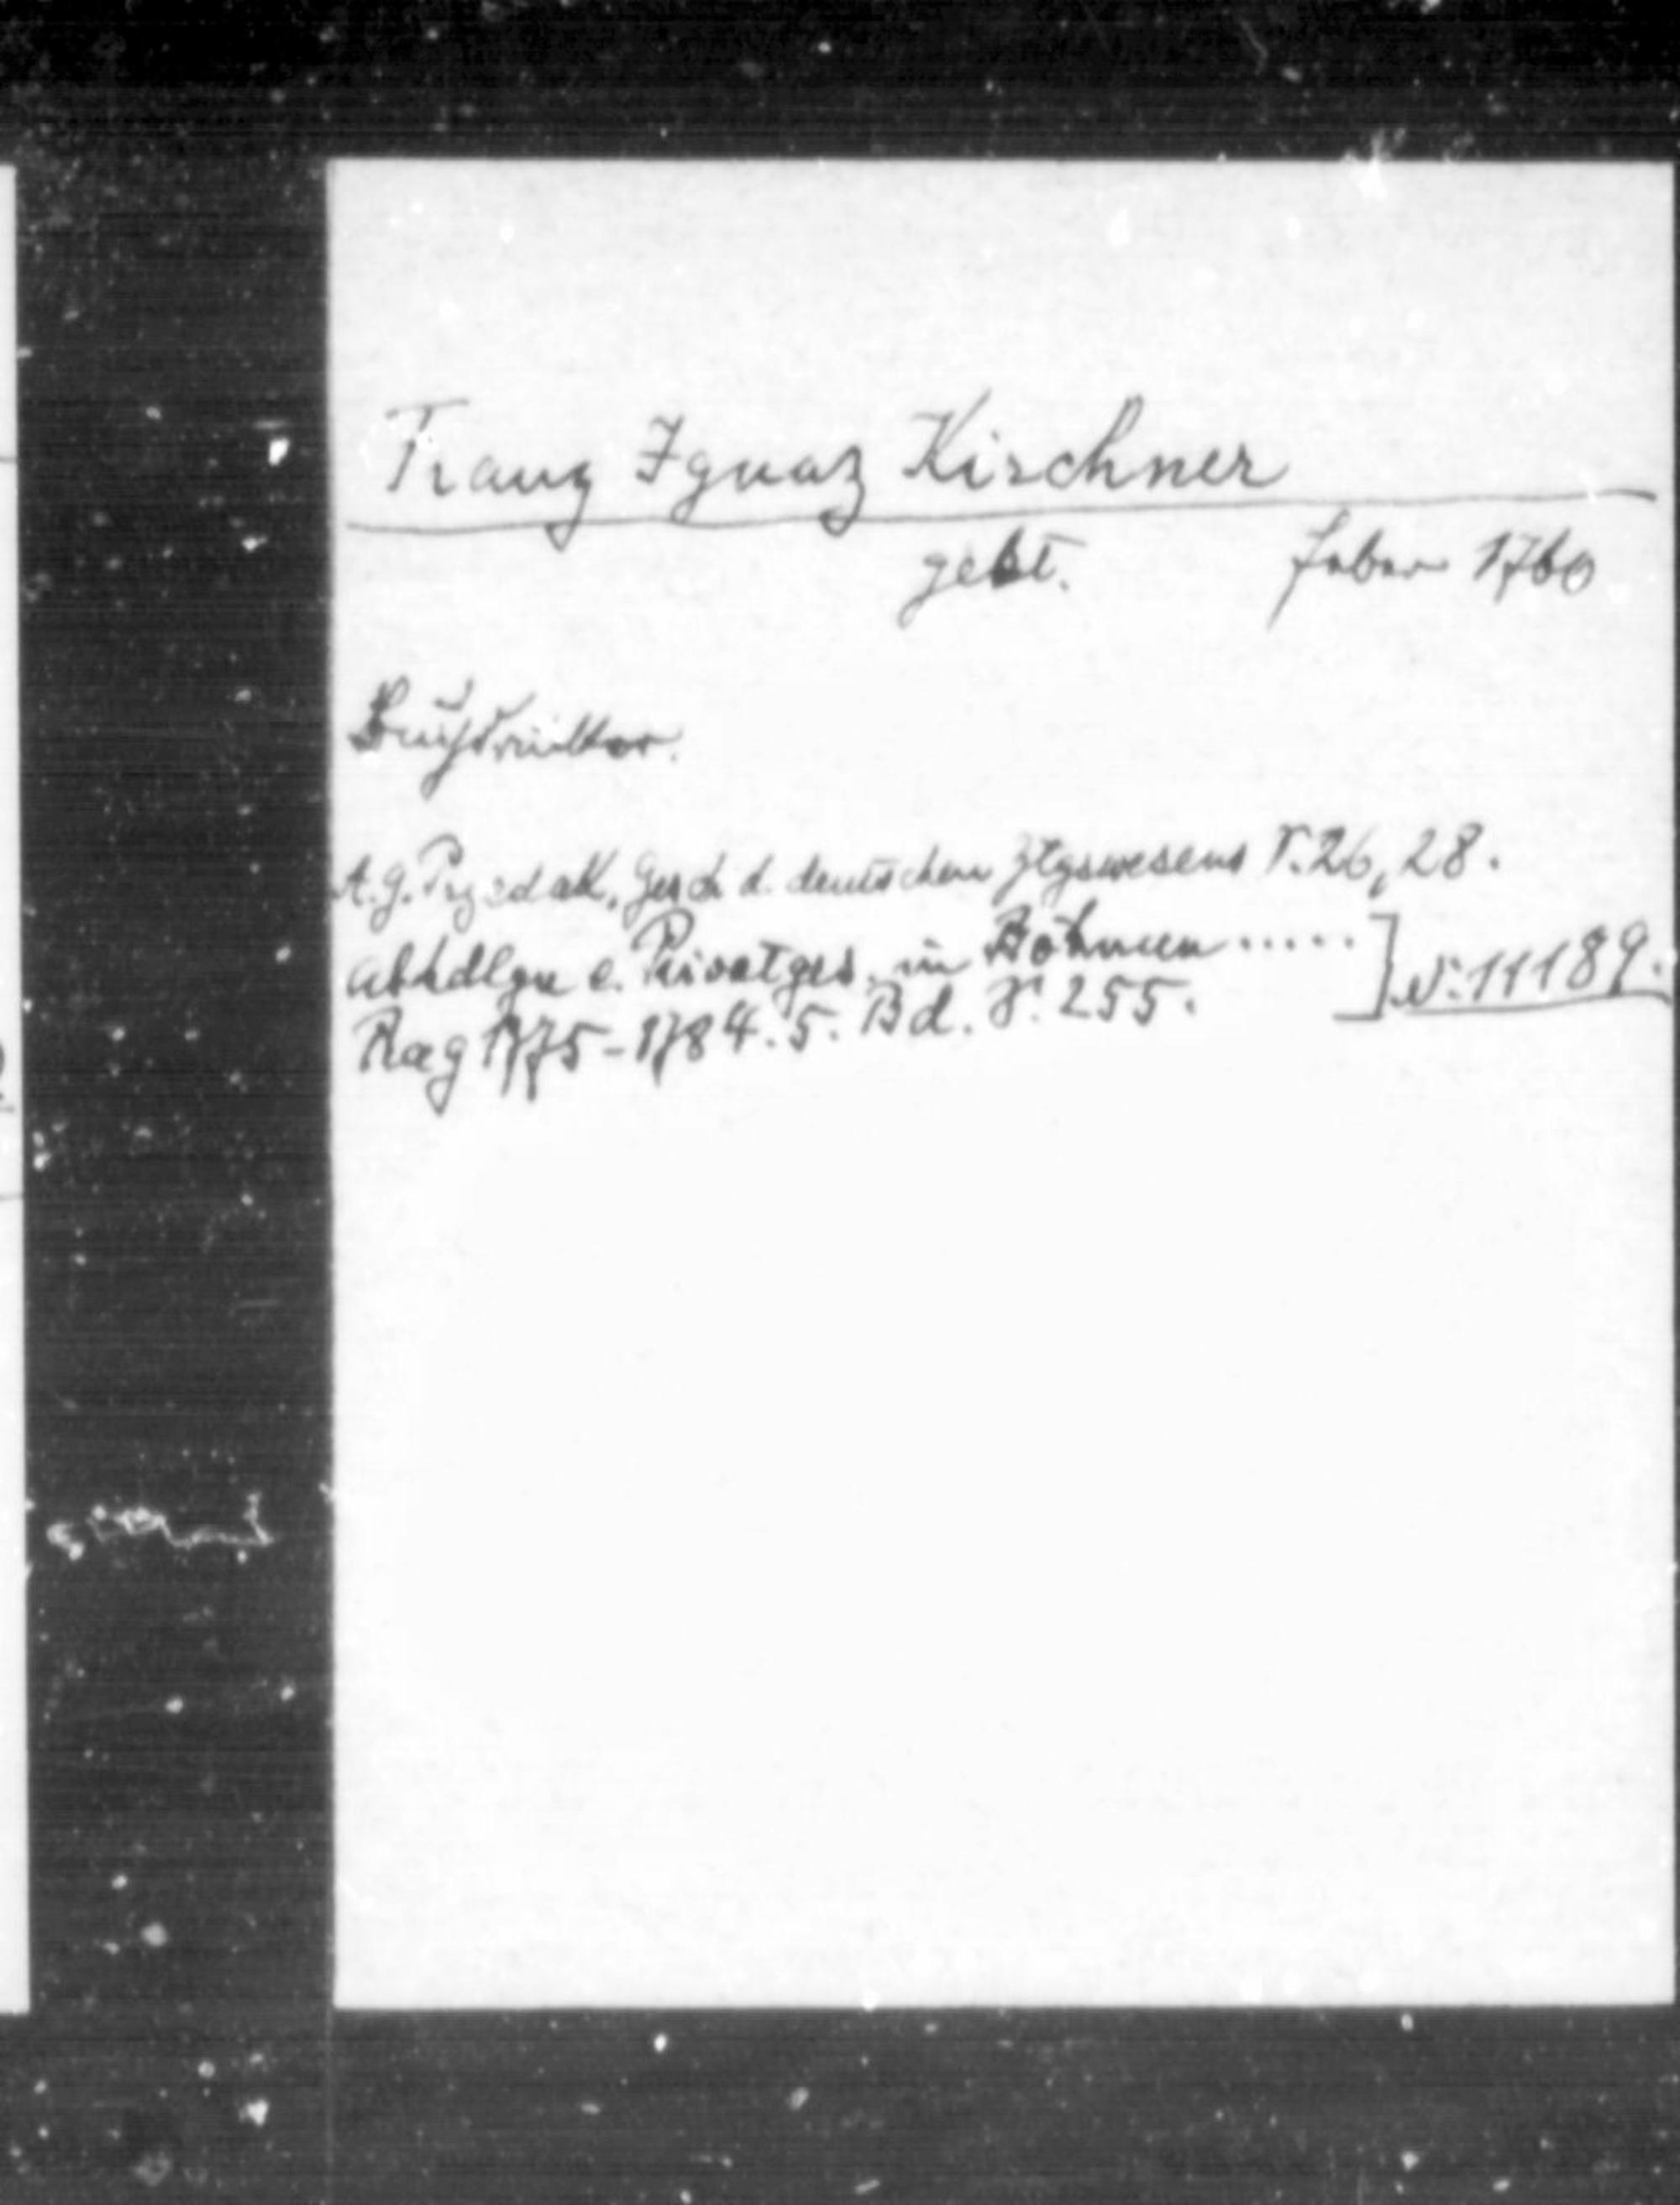 Franz Ignaz Kirchner
gest. feber 1760
Buchdrucker.
A.G. Przedak, Gesch d. deutschen Ztgswesens S. 26, 28.
Abhdlgn e. Privatges. in Böhmen.....
Prag 1775-1784. 5. Bd. S. 255. ] N: 11189.